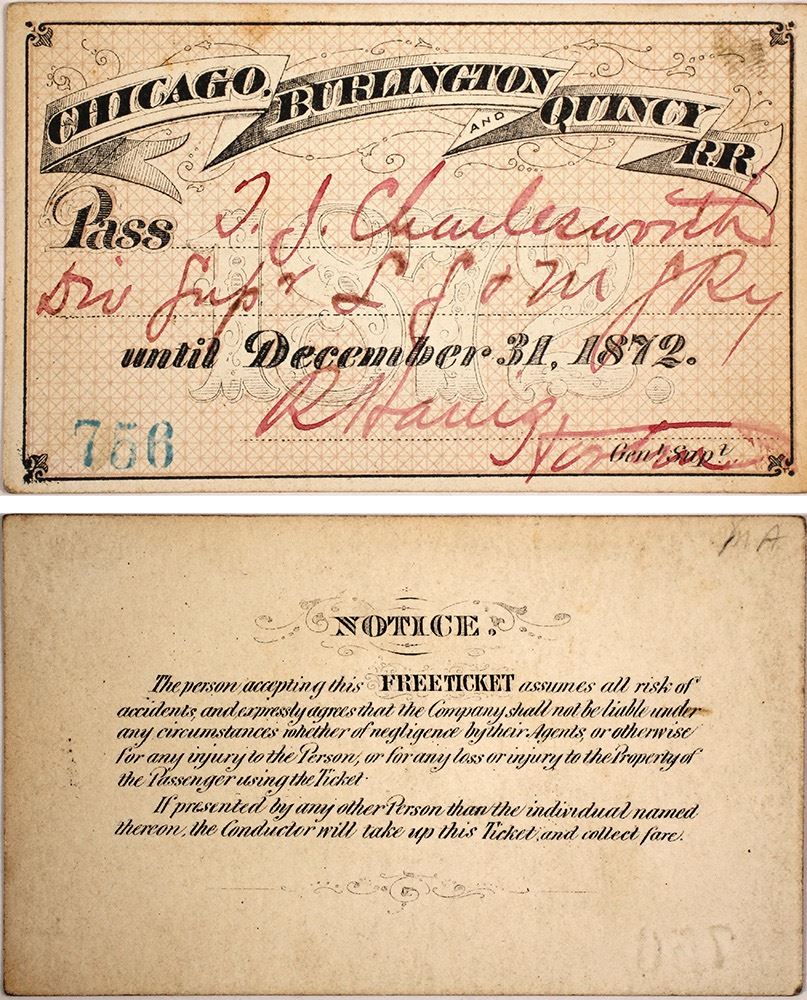 CHICAGO, BURLINGTON AND QUINCY R.R.
1872.
Pass T. J. Charlesworth
Div Supt L S & M S Ry
until December 31, 1872.
756
R Harris
Genl. Supt.
M A
NOTICE.
The person accepting this FREE TICKET assumes all risk of
accidents, and expressly agrees that the Company shall not be liable under
any circumstances whether of negligence by their Agents, or otherwise
for any injury to the Person, or for any loss or injury to the Property of
the Passenger using the Ticket.
If presented by any other Person than the individual named
thereon, the Conductor will take up this Ticket, and collect fare.